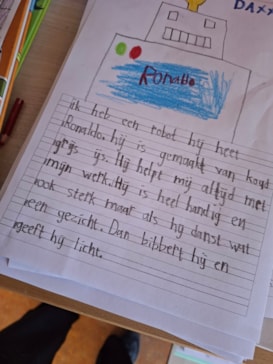 DAXX
Ronaldo
ik heb een robot hij heet
Ronaldo. hij is gemaakt van
grijs ijs. Hij helpt mij altijd met
mijn werk. Hij is heel handig en
ook sterk maar als hij danst wat
een gezicht. Dan bibbert hij en
geeft hij licht.